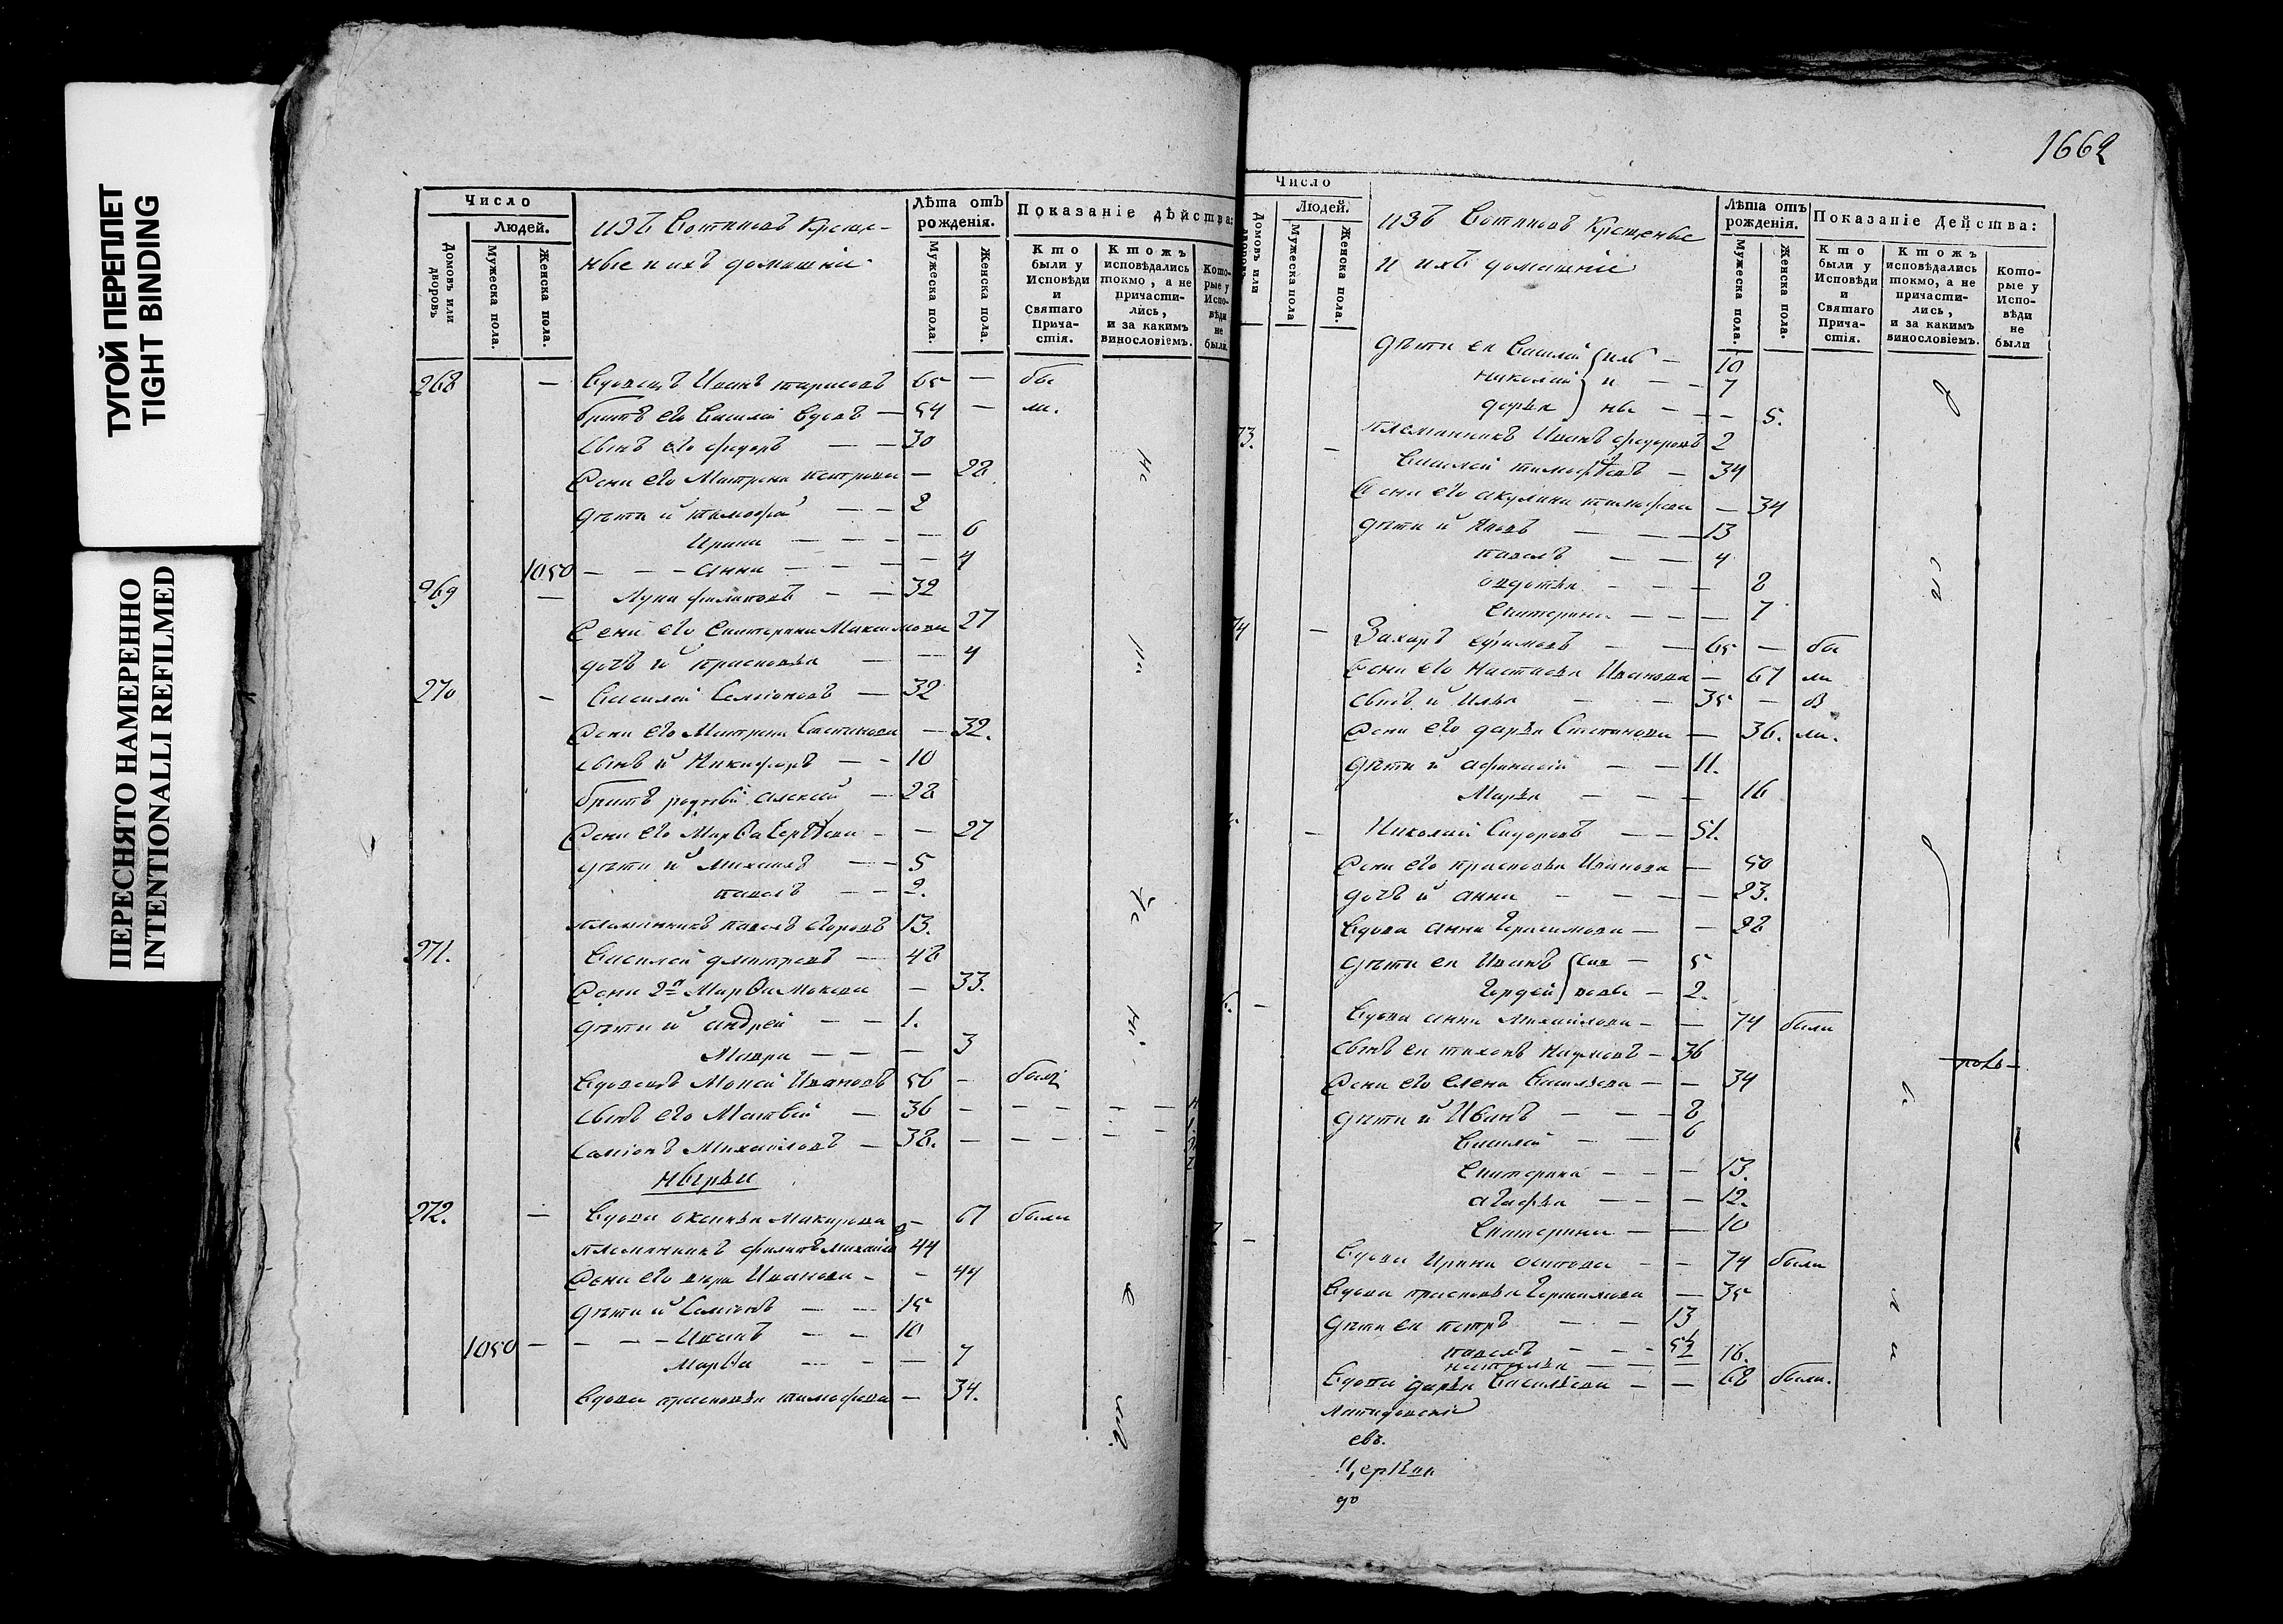 ТУГОЙ ПЕРЕПЛЕТ
TIGHT BINDING
ПЕРЕСНЯТО НАМЕРЕННО
INTENTIONALLI REFILMED
Число
Людей.
Домовъ или дворовъ
Мужеска пола.
Женска пола.
изъ Вотяковъ Креще-
ные и ихъ домашніи
Лѣта отъ рожденія.
Мужеска пола.
Женска пола.
Показаніе дѣйства:
Кто были у Исповѣди и Святаго Причастія.
Ктожъ исповѣдались токмо, а не причастились, и за какимъ винословіемъ.
Которые у Исповѣди не были
268 — Вдовецъ Иванъ 65 — бы
братъ его Василей — 54 — ли.
сынъ его Федоръ — — 30
Жена его Матрена Петрова — 28
дѣти и Тимофей — — 2
Ирина — — — — 6
1050 — — — Анна — — — — 4
269 — Лука Филиповъ — — 32
Жена его Екатерина Максимова 27
дочь и Прасковья — — 4
270 — Василей Семіоновъ — 32
Жена его Матрена — 32.
сынъ и Никифоръ — — 10
братъ родный Алексей — 28
Жена его Марѳа — — 27
дѣти и Михаилъ — — 5
Павелъ — — 2.
племянникъ Павелъ Егоровъ 13.
271. Василей Дмитревъ — 48
Жена 2я Марѳа — 33.
дѣти и Андрей — — 1.
Мавра — — — 3
Вдовецъ Моисей Ивановъ 56 — были
сынъ его Матвей — 36 — — — — —
Самсонъ Михайловъ — 38. — — — — —
272. — Вдова Оксинья Макарова — 67 были
племянникъ Филипъ 44
Жена его Вера Иванова — — 44
дѣти и — — 15
1050 — — — — Иванъ — — 10
Марѳа — — — 7
Вдова Прасковья Тимофеева — 34.
1662
Число
Людей.
Домовъ или
Мужеска пола
Женска пола.
изъ Вотяковъ Крещеные
и ихъ домашніе
Лѣта отъ рожденія.
Мужеска пола.
Женска пола.
Показаніе Действа:
Кто были у Исповѣди и Святаго Причастія.
Ктожъ исповѣдались токмо, а не причастились, и за какимъ винословіемъ.
Которые у Исповѣди не были
дѣти ея Василей — 10
Николай — — 7
Дарья — — — 5.
73. племянникъ Иванъ Федоровъ 2
— Василей Тимофѣевъ — 34
Жена его Акулина — 34
дѣти и Яковъ — — — 13
Павелъ — — 4
Авдотья — — — 8
Екатерина — — — 7
74 — Захаръ Ефимовъ — — 65 — бы
Жена его Настасья Иванова — 67 ли
сынъ и Илья — — 35 —
Жена его Дарья Степанова — 36. ли.
дѣти и Афанасій — — 11.
Марья — — — 16
— Николай Сидоровъ — — 51.
Жена его Прасковья Иванова — 50
дочь и Анна — — — 23.
Вдова Анна Герасимова — — 28
дѣти ея Иванъ — 5
— 2.
Вдова Анна Михайлова — — 74 были
сынъ ея Тихонъ Наумовъ — 36
Жена его Елена Василѣва — — 34
дѣти и Иванъ — — — 8
Василей — — 6
Екатерина — — — 13.
Агафья — — — 12.
Екатерина — — 10
Вдова Ирина Осипова — — 74 были
Вдова Прасковья Герасимова — 35
дѣти ея Петръ — — 13
Павелъ — — — 5½
Наталья — — — 16.
Вдова Дарья Василѣва — — 68 были.
Церкви
до